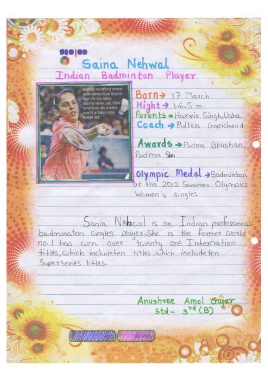 Saina Nehwal
Indian Badminton Player
Born → 17 March
Hight → 1.65 m
Parents → Harvir Singh, Usha
Coach → Pullela Gopichand
Awards → Padma Bhushan,
Padma Shri
Olympic Medal → Badminton
at the 2012 Summer Olympics
Women's singles
Saina Nehwal is an Indian professional
badminton singles player. She is the former world
no.1 has won over twenty one Internation
titles, which include ten titles, which include ten
Superseries titles.
Anushree Amol Gujar
Std - 3rd (B)